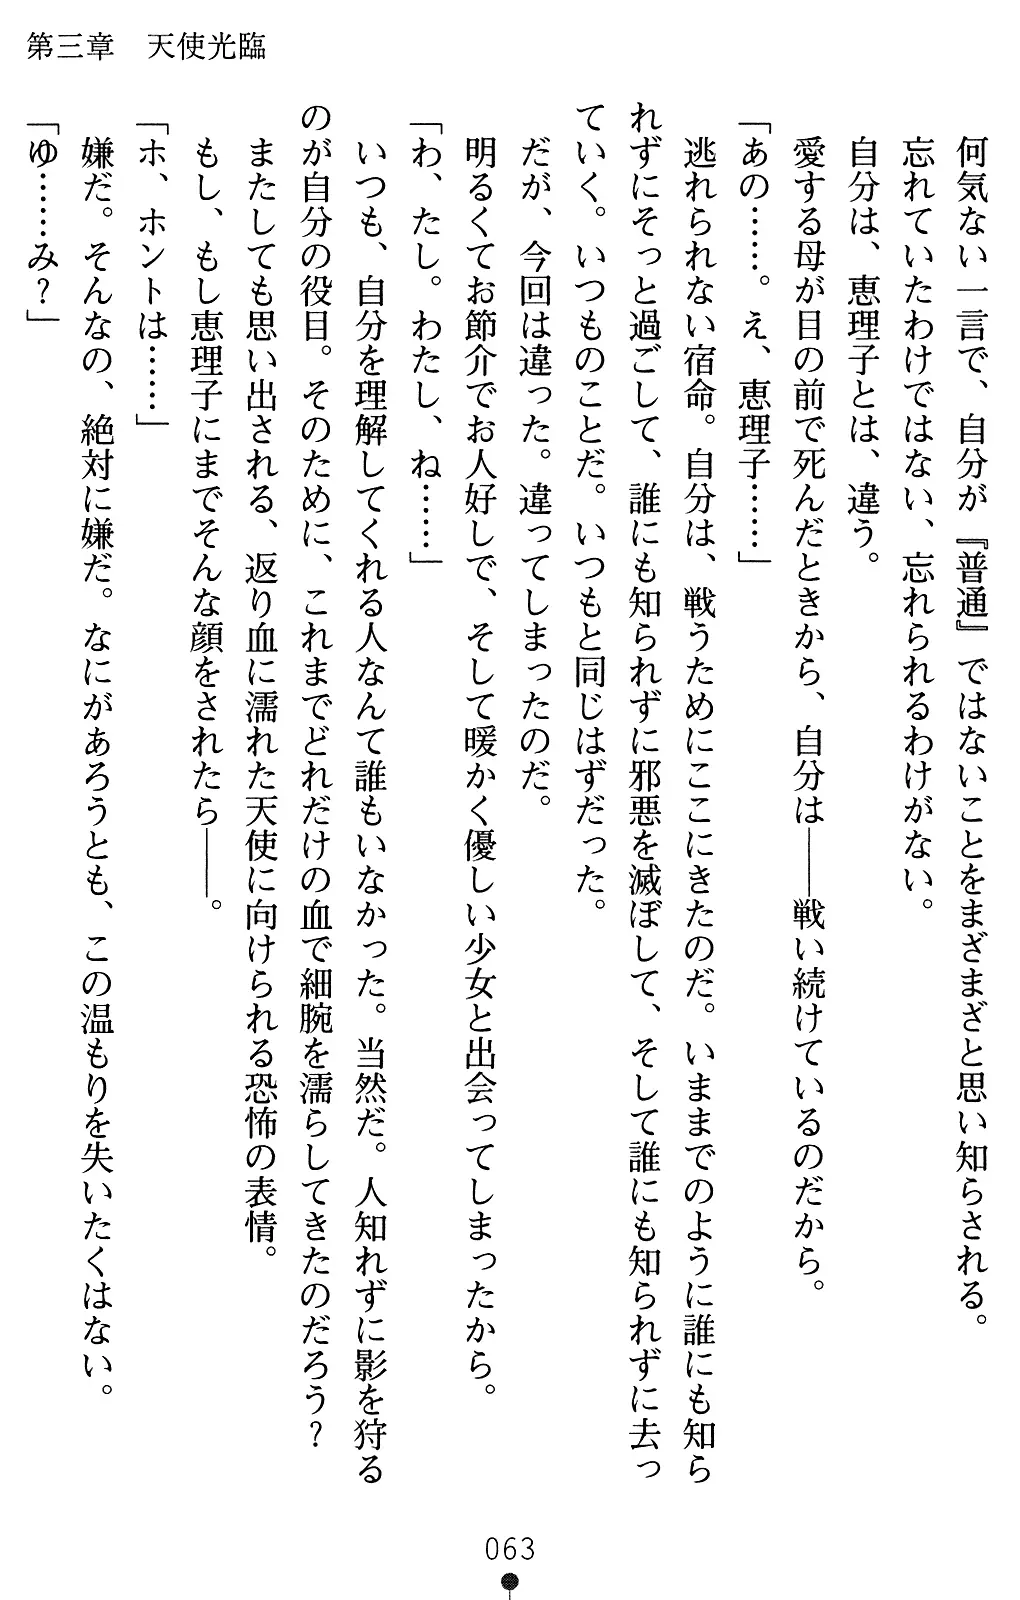 第三章　天使光臨
何気ない一言で、自分が『普通』ではないことをまざまざと思い知らされる。
忘れていたわけではない、忘れられるわけがない。
自分は、恵理子とは、違う。
愛する母が目の前で死んだときから、自分は――戦い続けているのだから。
「あの……。え、恵理子……」
逃れられない宿命。自分は、戦うためにここにきたのだ。いままでのように誰にも知ら
れずにそっと過ごして、誰にも知られずに邪悪を滅ぼして、そして誰にも知られずに去っ
ていく。いつものことだ。いつもと同じはずだった。
だが、今回は違った。違ってしまったのだ。
明るくてお節介でお人好しで、そして暖かく優しい少女と出会ってしまったから。
「わ、たし。わたし、ね……」
いつも、自分を理解してくれる人なんて誰もいなかった。当然だ。人知れずに影を狩る
のが自分の役目。そのために、これまでどれだけの血で細腕を濡らしてきたのだろう？
またしても思い出される、返り血に濡れた天使に向けられる恐怖の表情。
もし、もし恵理子にまでそんな顔をされたら――。
「ホ、ホントは……」
嫌だ。そんなの、絶対に嫌だ。なにがあろうとも、この温もりを失いたくはない。
「ゆ……み？」
063